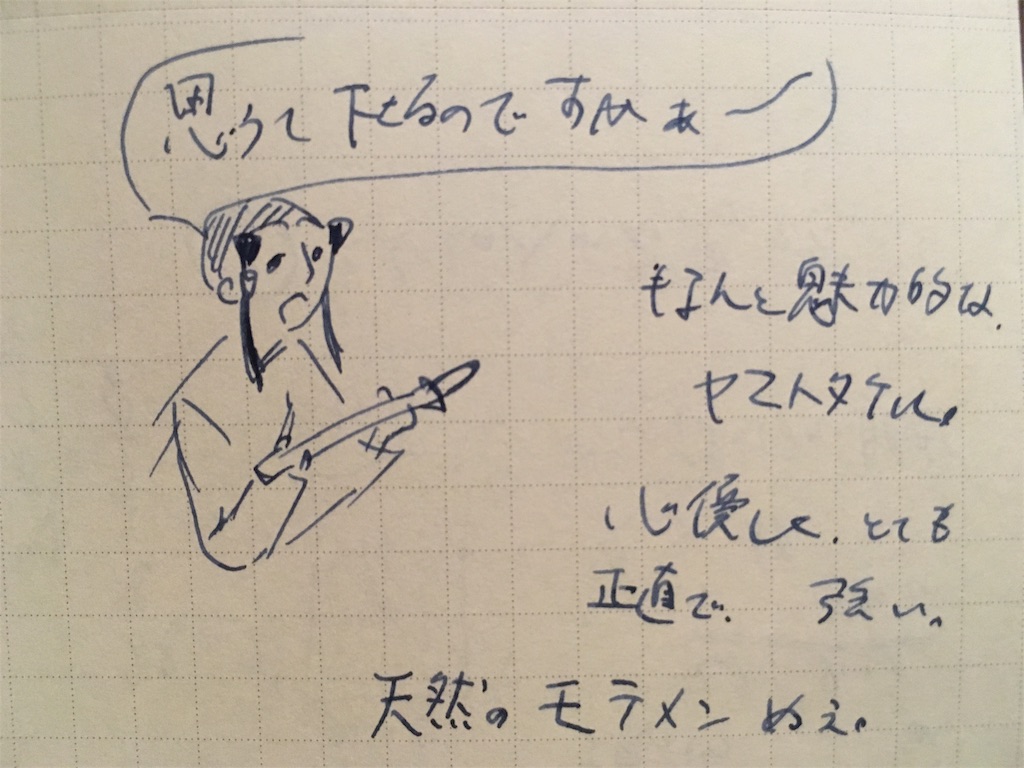 思って下さるのですかぁ〜
なんと魅力的な、
ヤマトタケル。
心優しく、とても
正直で、強い。
天然のモテメン